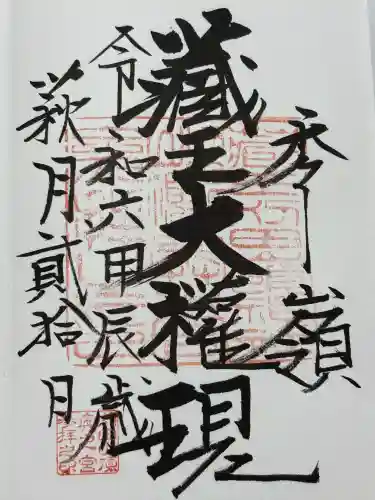 秀嶺
藏王大權現
令和六甲辰歳
萩月貳拾日